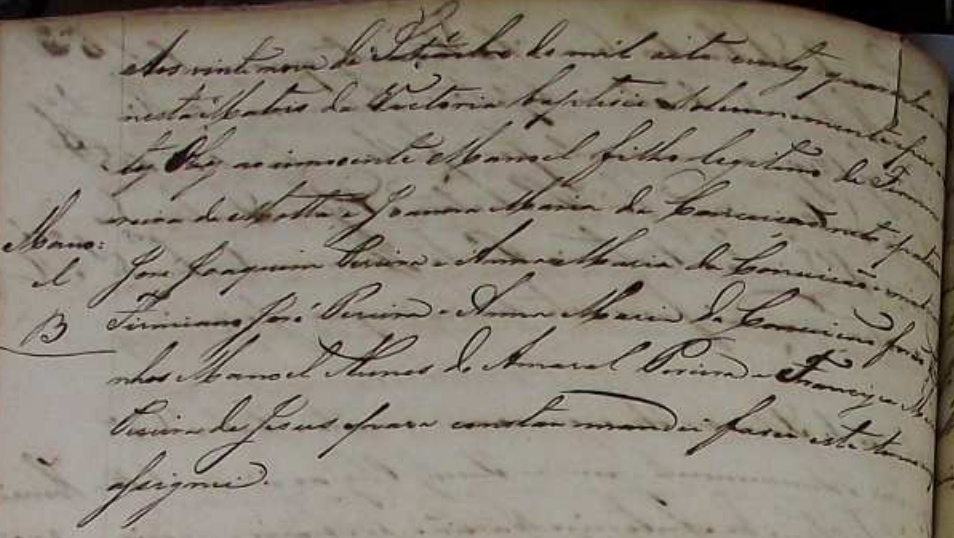 Aos vinte nove de Setembro de mil oito centos quarenta
nesta Matris da Victoria baptisei solemnemente
tos Oleos ao innocente Manoel filho legitimo de
reira da Motta e Joanna Maria da Conceicão neto
Mano=
el
B
Jose Joaquim Pereira e Anna Maria da Conceicão
Firmiano José Pereira e Anna Maria da Conceicão forão
nhos Manoel Nunes do Amaral Pereira e Francisca
Pereira de Jesus para constar mandei faser este
assignei.